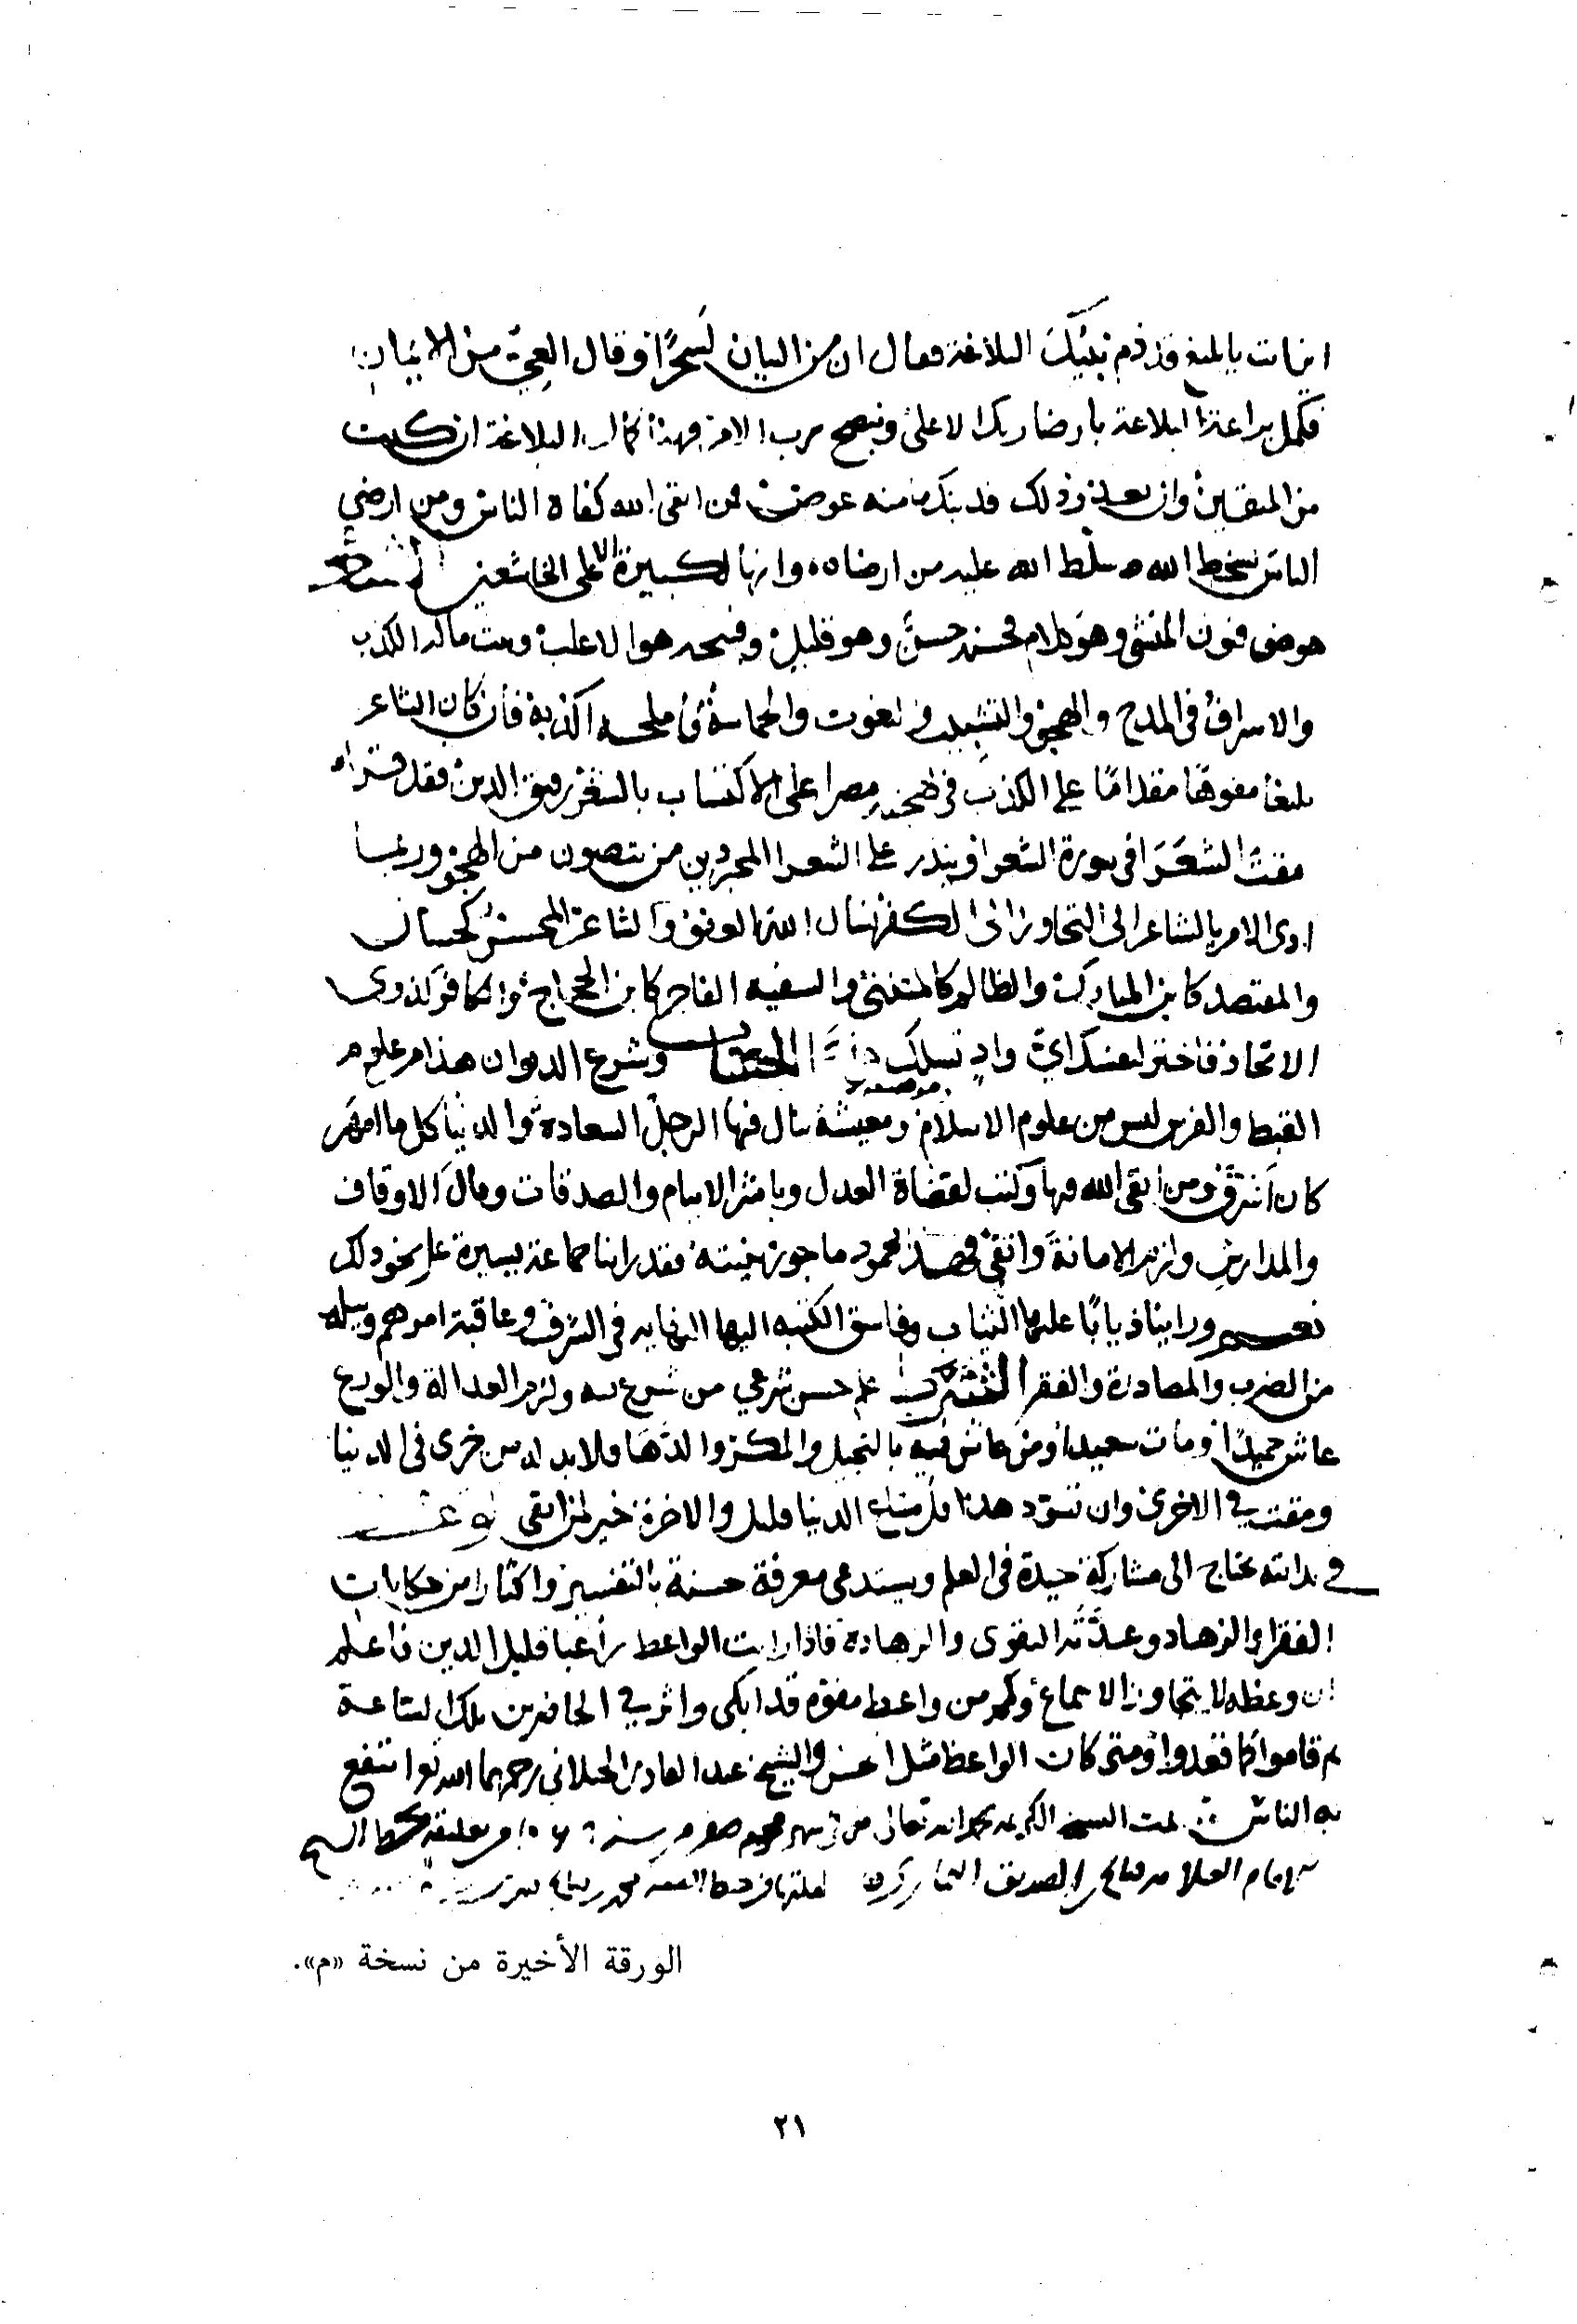 انت يا بليغ قد ذم نبيك البلاغة فقال ان من البيان لسحرا وقال العي من الايمان
فكمل براعة البلاغة بارضا ربك الاعلى ونصح حرب الامة فهذا كمال البلاغة ان كنت
من المتقين وان تعذر ذلك فدينك ما منه عوض فمن اتقى الله كفاه الناس ومن ارضى
الناس بسخط الله سلط الله عليه من ارضاه وانها لكبيرة الا على الخاشعين الشعر
هو من فنون المنشي وهو كلام فحسنه حسن وهو قليل وقبيحه هو الاغلب وبيت ماله الكذب
والاسراف في المدح والهجو والتشبيه والنعوت والحماسة واملحه اكذبه فان كان الشاعر
بليغا مفوها مقداما على الكذب في لهجته مصرا على الاكتساب بالشعر رقيق الدين فقد قراء
مقت الشعرا في سورة الشعرا ويندر على الشعرا المجودين من يتصون من الهجو وربما
ادى الامر بالشاعر الى التجاوز الى الكفر نسال الله العفو والشاعر المحسن كحسان
والمقتصد كابن المبارك والظالم كالمتنبي والسفيه الفاجر كابن الحجاج والكافر كذوي
الاتحاد فاختر لنفسك اي واد تسلك الحساب وشرع الديوان هذا من علوم
القبط والفرس ليس من علوم الاسلام ومعيشة ينال فيها الرجل السعادة والدنيا كل ما امهر
كان اشرف ومن اتقى الله فيها وكتب لقضاة العدل وباشر الايتام والصدقات ومال الاوقاف
والمدارس والزم الامانة واتقى فهذا محمود ماجور بنيته فقد راينا جماعة يسيرة على نحو ذلك
نعم وراينا ذيابا عليها الثياب وفاسق الكتبه اليها النهايه في السرف وعاقبة امرهم وبيله
من الضرب والمصادرة والفقر الشروط علم حسن شرعي من شرع به ولزم العدالة والورع
عاش حميدا ومات سعيدا ومن عاش فيه بالتحيل والمكر والدها فلابد له من خزي في الدنيا
ومقت في الاخرى وان تسود هذا قل متاع الدنيا قليل والاخرة خير لمن اتقى الوعظ
في بدايته يحتاج الى مشاركة جيدة في العلم ويستدعي معرفة حسنة بالتفسير واكثارا من حكايات
الفقرا والزهاد وعدته التقوى والزهادة فاذا رايت الواعظ راغبا قليل الدين فاعلم
ان وعظه لا يتجاوز الاسماع وكم من واعظ مفوه قد ابكى واثر في الحاضرين تلك الساعة
ثم قاموا كما قعدوا ومتى كان الواعظ مثل الحسن والشيخ عبد القادر الجيلاني رحمهما الله انتفع
به الناس تمت النسخة الكريمة بحمد الله تعالى من شهر صفر سنة
الورقة الأخيرة من نسخة «م».
٢١